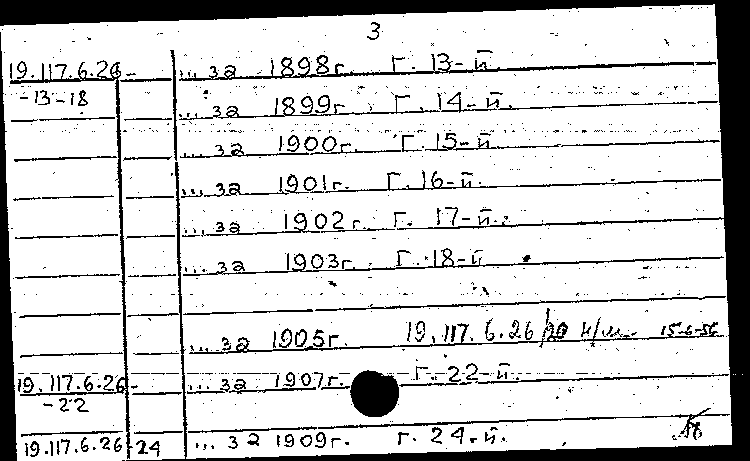 3
19.117.6.26- ... за 1898г. Г. 13-й.
-13-18
... за 1899г. Г. 14-й.
... за 1900г. Г. 15-й
... за 1901г. Г. 16-й.
... за 1902г. Г. 17-й.
... за 1903г. Г. 18-й
... за 1905г. 19.117.6.26/20 15-6-56
19.117.6.26- ... за 1907г. Г. 22-й.
-22
19.117.6.26-24 ... за 1909г. Г. 24-й.